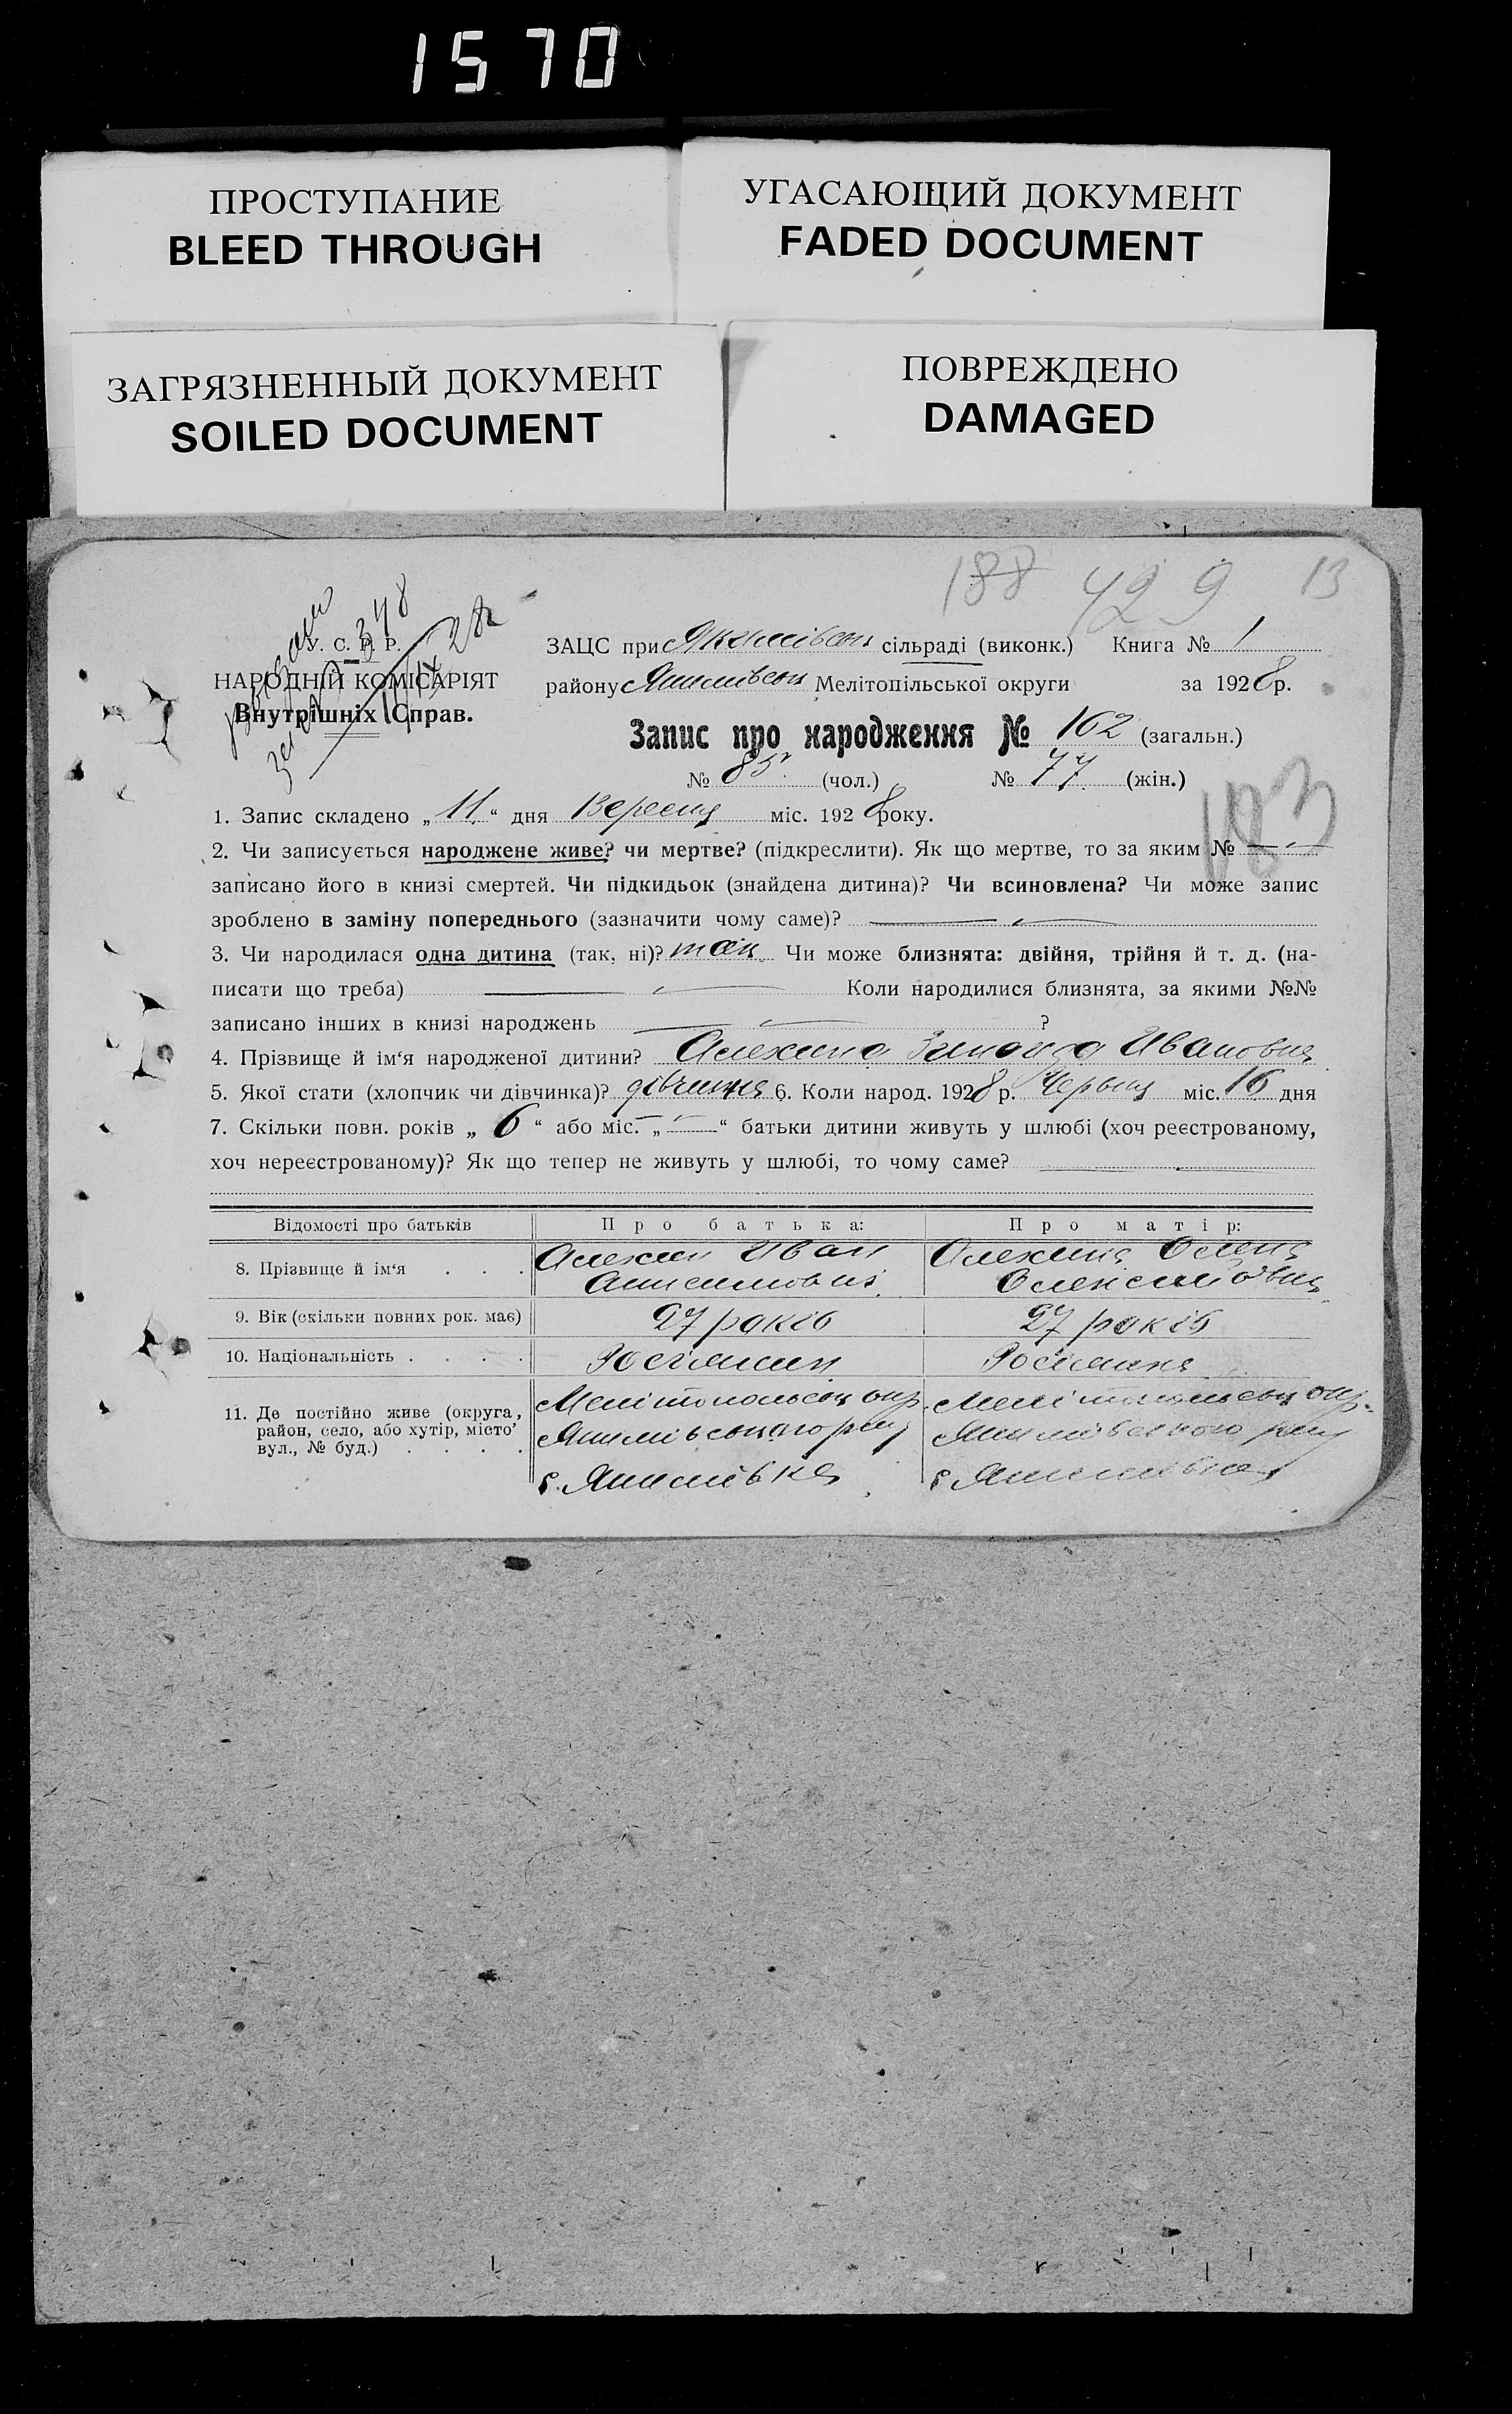 1570
ПРОСТУПАНИЕ
BLEED THROUGH
УГАСАЮЩИЙ ДОКУМЕНТ
FADED DOCUMENT
ЗАГРЯЗНЕННЫЙ ДОКУМЕНТ
SOILED DOCUMENT
ПОВРЕЖДЕНО
DAMAGED
188 429 13
348
У. С. Р. Р.
НАРОДНІЙ КОМІСАРІЯТ
Внутрішніх Справ.
ЗАЦС при Якимівськ сільраді (виконк.) Книга № 1
району Якимівськ Мелітопільської округи за 1928 р.
Запис про народження № 162 (загальн.)
№ 85 (чол.) № 77 (жін.)
183
1. Запис складено „11“ дня Вересня міс. 1928 року.
2. Чи записується народжене живе? чи мертве? (підкреслити). Як що мертве, то за яким № —
записано його в книзі смертей. Чи підкидьок (знайдена дитина)? Чи всиновлена? Чи може запис
зроблено в заміну попереднього (зазначити чому саме)? —
3. Чи народилася одна дитина (так, ні)? так Чи може близнята: двійня, трійня й т. д. (на-
писати що треба) — Коли народилися близнята, за якими №№
записано інших в книзі народжень — ?
4. Прізвище й ім‘я народженої дитини? Алехина Зинаида Ивановна
5. Якої стати (хлопчик чи дівчинка)? дівчинка 6. Коли народ. 1928 р. Червня міс. 16 дня
7. Скільки повн. років „6“ або міс. „—“ батьки дитини живуть у шлюбі (хоч реєстрованому,
хоч нереєстрованому)? Як що тепер не живуть у шлюбі, то чому саме? —
Відомості про батьків Про батька: Про матір:
8. Прізвище й ім‘я . . . Алехин Иван Алехина Олена
Олексиївна
9. Вік (скільки повних рок. має) 27 років 27 років
10. Національність . . . . Росіянин Росіянка
11. Де постійно живе (округа,
район, село, або хутір, місто
вул., № буд.) . . . .
Мелітопольськ окр. Мелітопольськ окр.
Якимівського рну Якимівського рну
с. Якимівка с. Якимівка